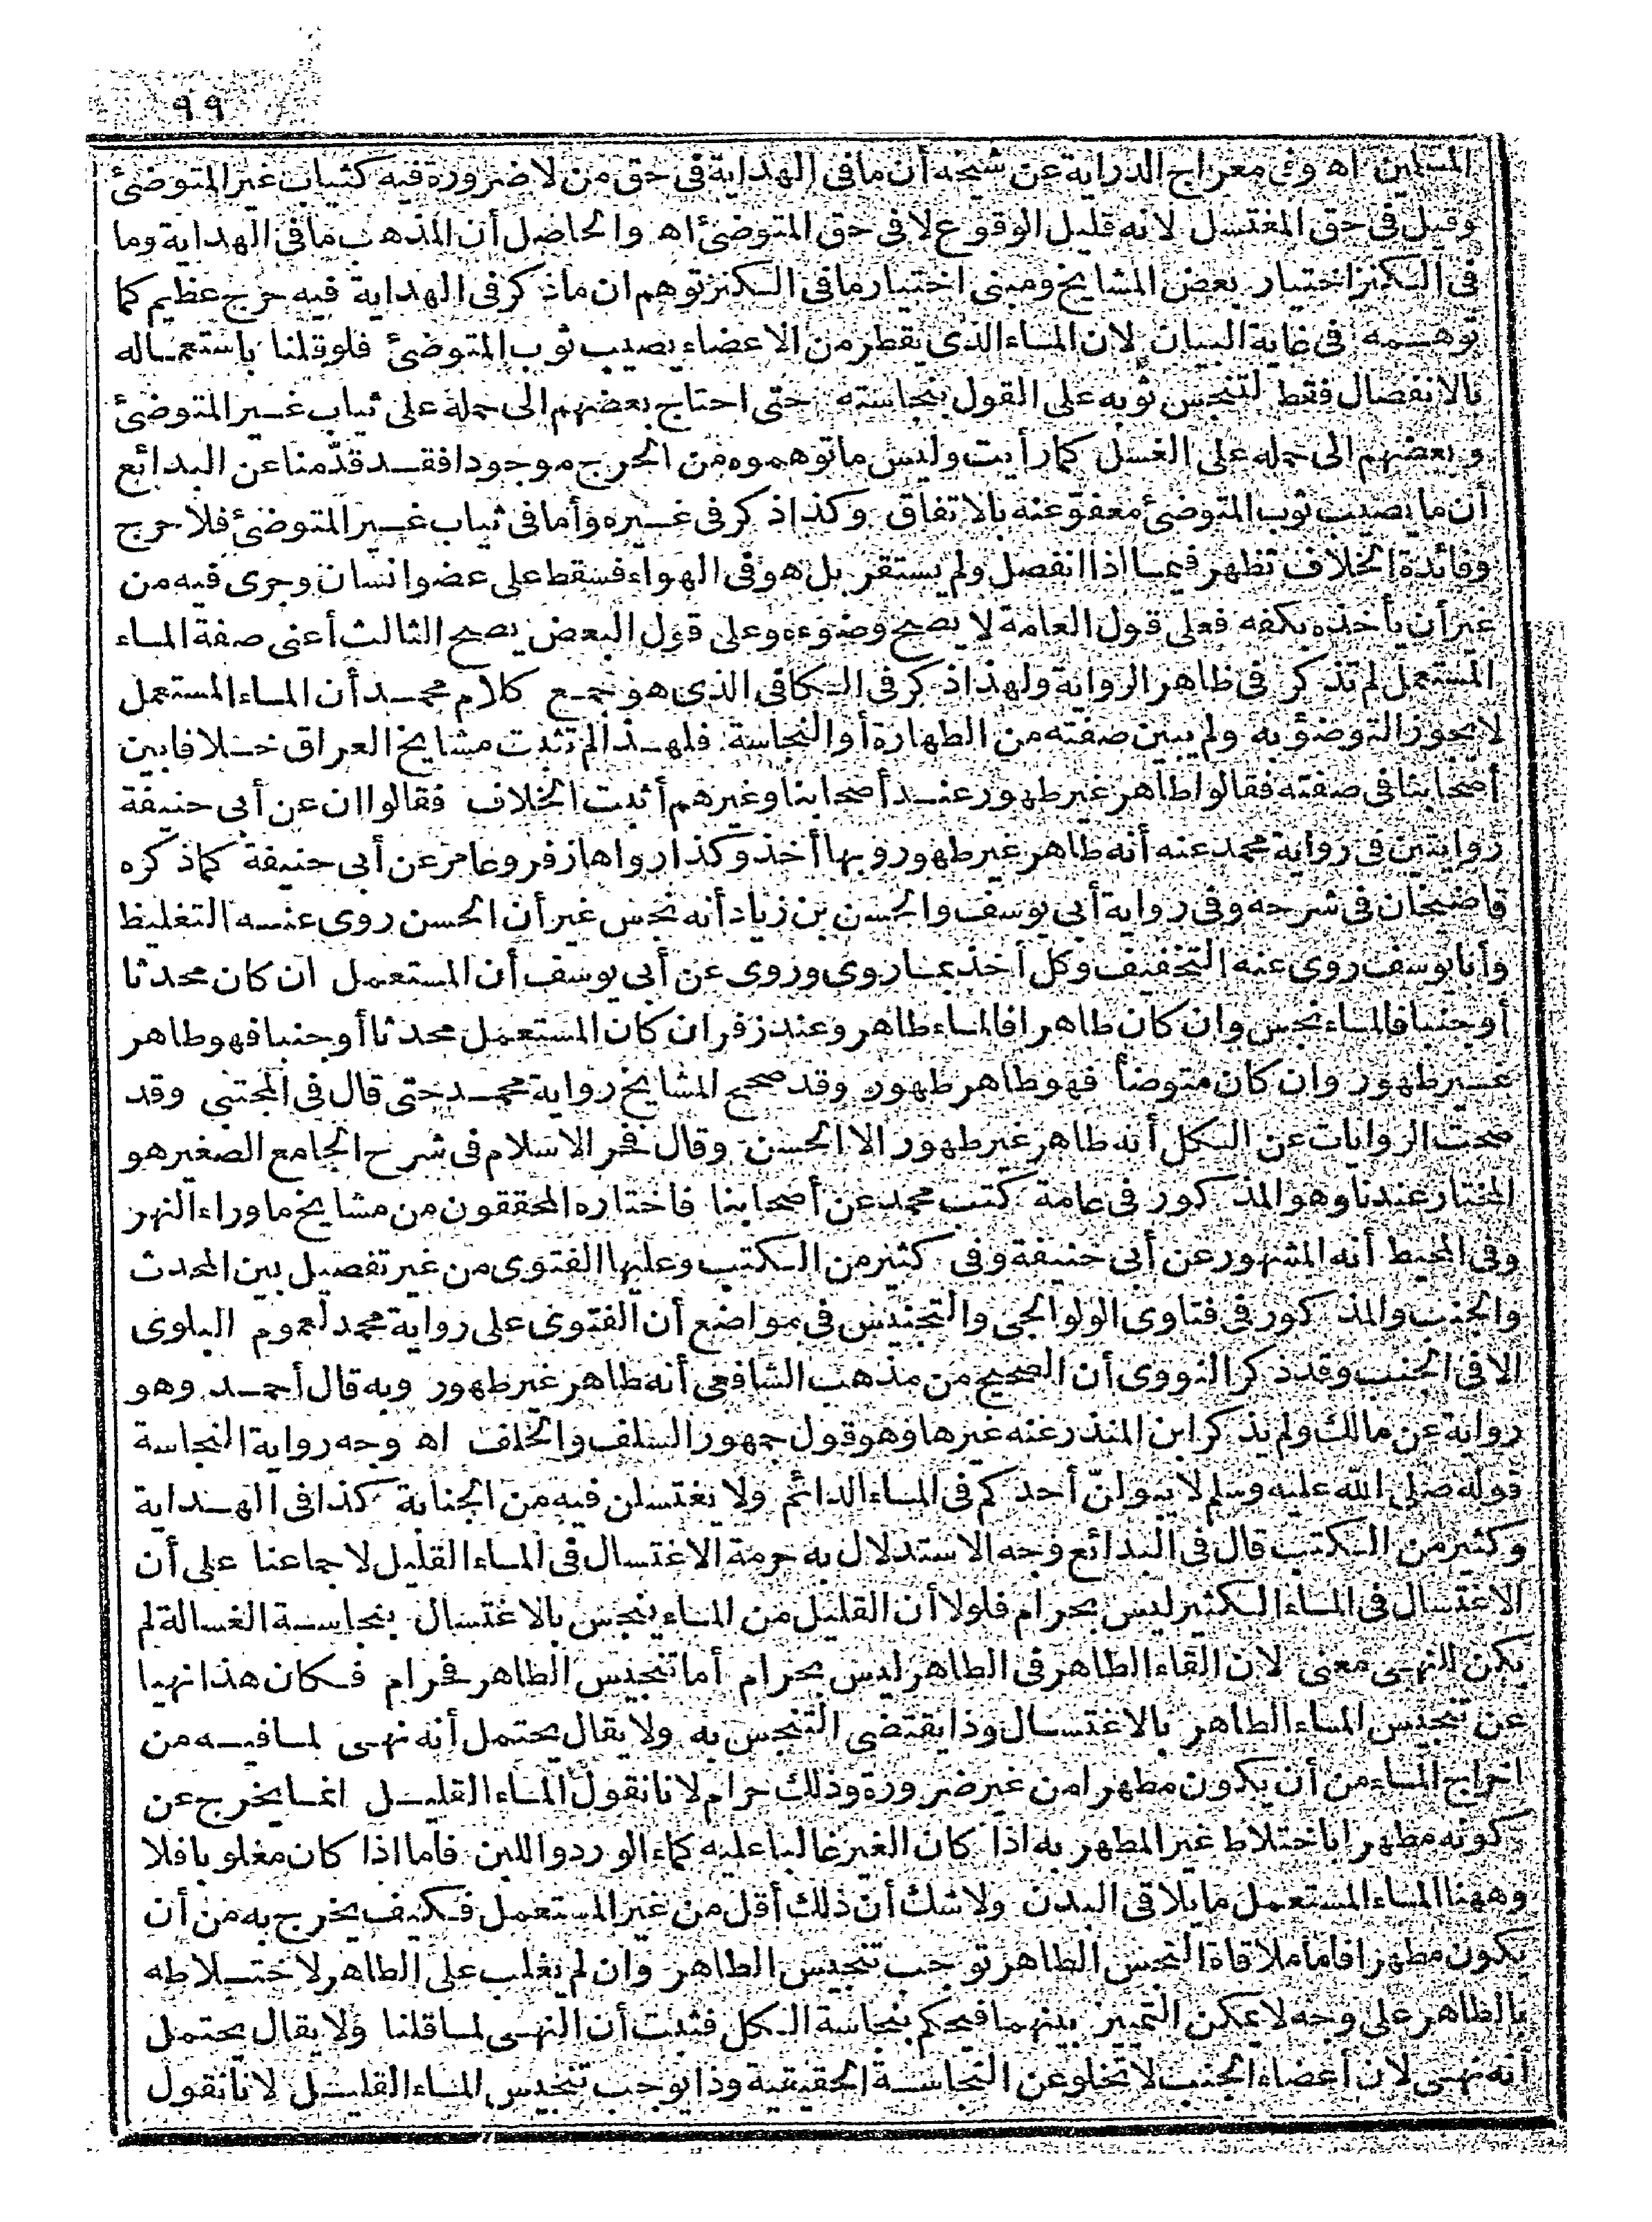 ٩٩
المسلمين اه وفى معراج الدراية عن شيخه أن مافى الهداية فى حق من لا ضرورة فيه كثياب غير المتوضئ
وقيل فى حق المغتسل لانه قليل الوقوع لا فى حق المتوضئ اه والحاصل أن المذهب مافى الهداية وما
فى الكنز اختيار بعض المشايخ ومبنى اختيار مافى الكنز توهم ان ماذكر فى الهداية فيه حرج عظيم كما
توهمه فى غاية البيان لان الماء الذى يقطر من الاعضاء يصيب ثوب المتوضئ فلو قلنا باستعماله
بالانفصال فقط لتنجس ثوبه على القول بنجاسته حتى احتاج بعضهم الى حمله على ثياب غير المتوضئ
وبعضهم الى حمله على الغسل كما رأيت وليس ماتوهموه من الحرج موجودا فقد قدّمنا عن البدائع
أن ما يصيب ثوب المتوضئ معفوّ عنه بالاتفاق وكذا ذكر فى غيره وأما فى ثياب غير المتوضئ فلا حرج
وفائدة الخلاف تظهر فيما اذا انفصل ولم يستقر بل هو فى الهواء فسقط على عضو انسان وجرى فيه من
غير أن يأخذه بكفه فعلى قول العامة لا يصح وضوءه وعلى قول البعض يصح الثالث أعنى صفة الماء
المستعمل لم تذكر فى ظاهر الرواية ولهذا ذكر فى الكافى الذى هو جمع كلام محمد أن الماء المستعمل
لا يجوز التوضؤ به ولم يبين صفته من الطهارة أو النجاسة فلهذا لم تثبت مشايخ العراق خلافا بين
أصحابنا فى صفته فقالوا طاهر غير طهور عند أصحابنا وغيرهم أثبت الخلاف فقالوا ان عن أبى حنيفة
روايتين فى رواية محمد عنه أنه طاهر غير طهور وبها أخذ وكذا رواها زفر وعامر عن أبى حنيفة كماذكره
قاضيخان فى شرحه وفى رواية أبى يوسف والحسن بن زياد أنه نجس غير أن الحسن روى عنه التغليظ
وأبا يوسف روى عنه التخفيف وكل أخذ بما روى وروى عن أبى يوسف أن المستعمل ان كان محدثا
أو جنبا فالماء نجس وان كان طاهرا فالماء طاهر وعند زفر ان كان المستعمل محدثا أو جنبا فهو طاهر
غير طهور وان كان متوضأ فهو طاهر طهور وقد صحح المشايخ رواية محمد حتى قال فى المجتبى وقد
صحت الروايات عن الكل أنه طاهر غير طهور الا الحسن وقال فخر الاسلام فى شرح الجامع الصغير هو
المختار عندنا وهو المذكور فى عامة كتب محمد عن أصحابنا فاختاره المحققون من مشايخ ماوراء النهر
وفى المحيط أنه المشهور عن أبى حنيفة وفى كثير من الكتب وعليها الفتوى من غير تفصيل بين المحدث
والجنب والمذكور فى فتاوى الولوالجى والتجنيس فى مواضع أن الفتوى على رواية محمد لعموم البلوى
الا فى الجنب وقد ذكر النووى أن الصحيح من مذهب الشافعى أنه طاهر غير طهور وبه قال أحمد وهو
رواية عن مالك ولم يذكر ابن المنذر عنه غيرها وهو قول جمهور السلف والخلف اه وجه رواية النجاسة
قوله صلى الله عليه وسلم لا يبولنّ أحدكم فى الماء الدائم ولا يغتسلن فيه من الجنابة كذا فى الهداية
وكثير من الكتب قال فى البدائع وجه الاستدلال به حرمة الاغتسال فى الماء القليل لاجماعنا على أن
الاغتسال فى الماء الكثير ليس بحرام فلولا أن القليل من الماء ينجس بالاغتسال بنجاسة الغسالة لم
يكن للنهى معنى لان القاء الطاهر فى الطاهر ليس بحرام أما تنجيس الطاهر فحرام فكان هذا نهيا
عن تنجيس الماء الطاهر بالاغتسال وذا يقتضى التنجس به ولا يقال يحتمل أنه نهى لما فيه من
اخراج الماء من أن يكون مطهرا من غير ضرورة وذلك حرام لانا نقول الماء القليل انما يخرج عن
كونه مطهرا باختلاط غير المطهر به اذا كان الغير غالبا عليه كماء الورد واللبن فأما اذا كان مغلوبا فلا
وههنا الماء المستعمل مايلاقى البدن ولا شك أن ذلك أقل من غير المستعمل فكيف يخرج به من أن
يكون مطهرا فأما ملاقاة النجس الطاهر توجب تنجيس الطاهر وان لم يغلب على الطاهر لاختلاطه
بالطاهر على وجه لا يمكن التمييز بينهما فيحكم بنجاسة الكل فثبت أن النهى لما قلنا ولا يقال يحتمل
أنه نهى لان أعضاء الجنب لا تخلو عن النجاسة الحقيقية وذا يوجب تنجيس الماء القليل لانا نقول